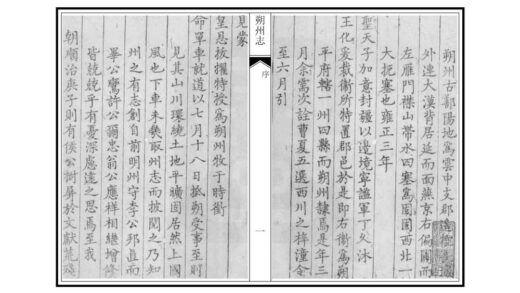 朔州古鄯陽地爲雲中支郡
外連大漠背居延而面燕京右偏關而
左雁門襟山帶水四塞爲固國西北一
大扼塞也雍正三年
聖天子加意封疆以邊境寧謐軍丁久沐
王化爰裁衛所特置郡邑於是即右衛爲朔
平府轄一州四縣而朔州隸焉是年三
月余寓次詮曹夏五選西川之梓潼令
至六月引
朔州志
序
一
見蒙
皇恩拔擢特授爲朔州牧于時銜
命單車就道以七月十八日抵朔受事至則
見其山川環繞土地平曠固居然上國
風也下車未幾取州志而披閱之乃知
州之有志創自前明州守李公邦直而
畢公鸞許公爾忠翁公應祥相繼增修
皆兢兢乎有憂深慮遠之思焉至我
朝順治庚子則有侯公樹屏於文獻荒殘